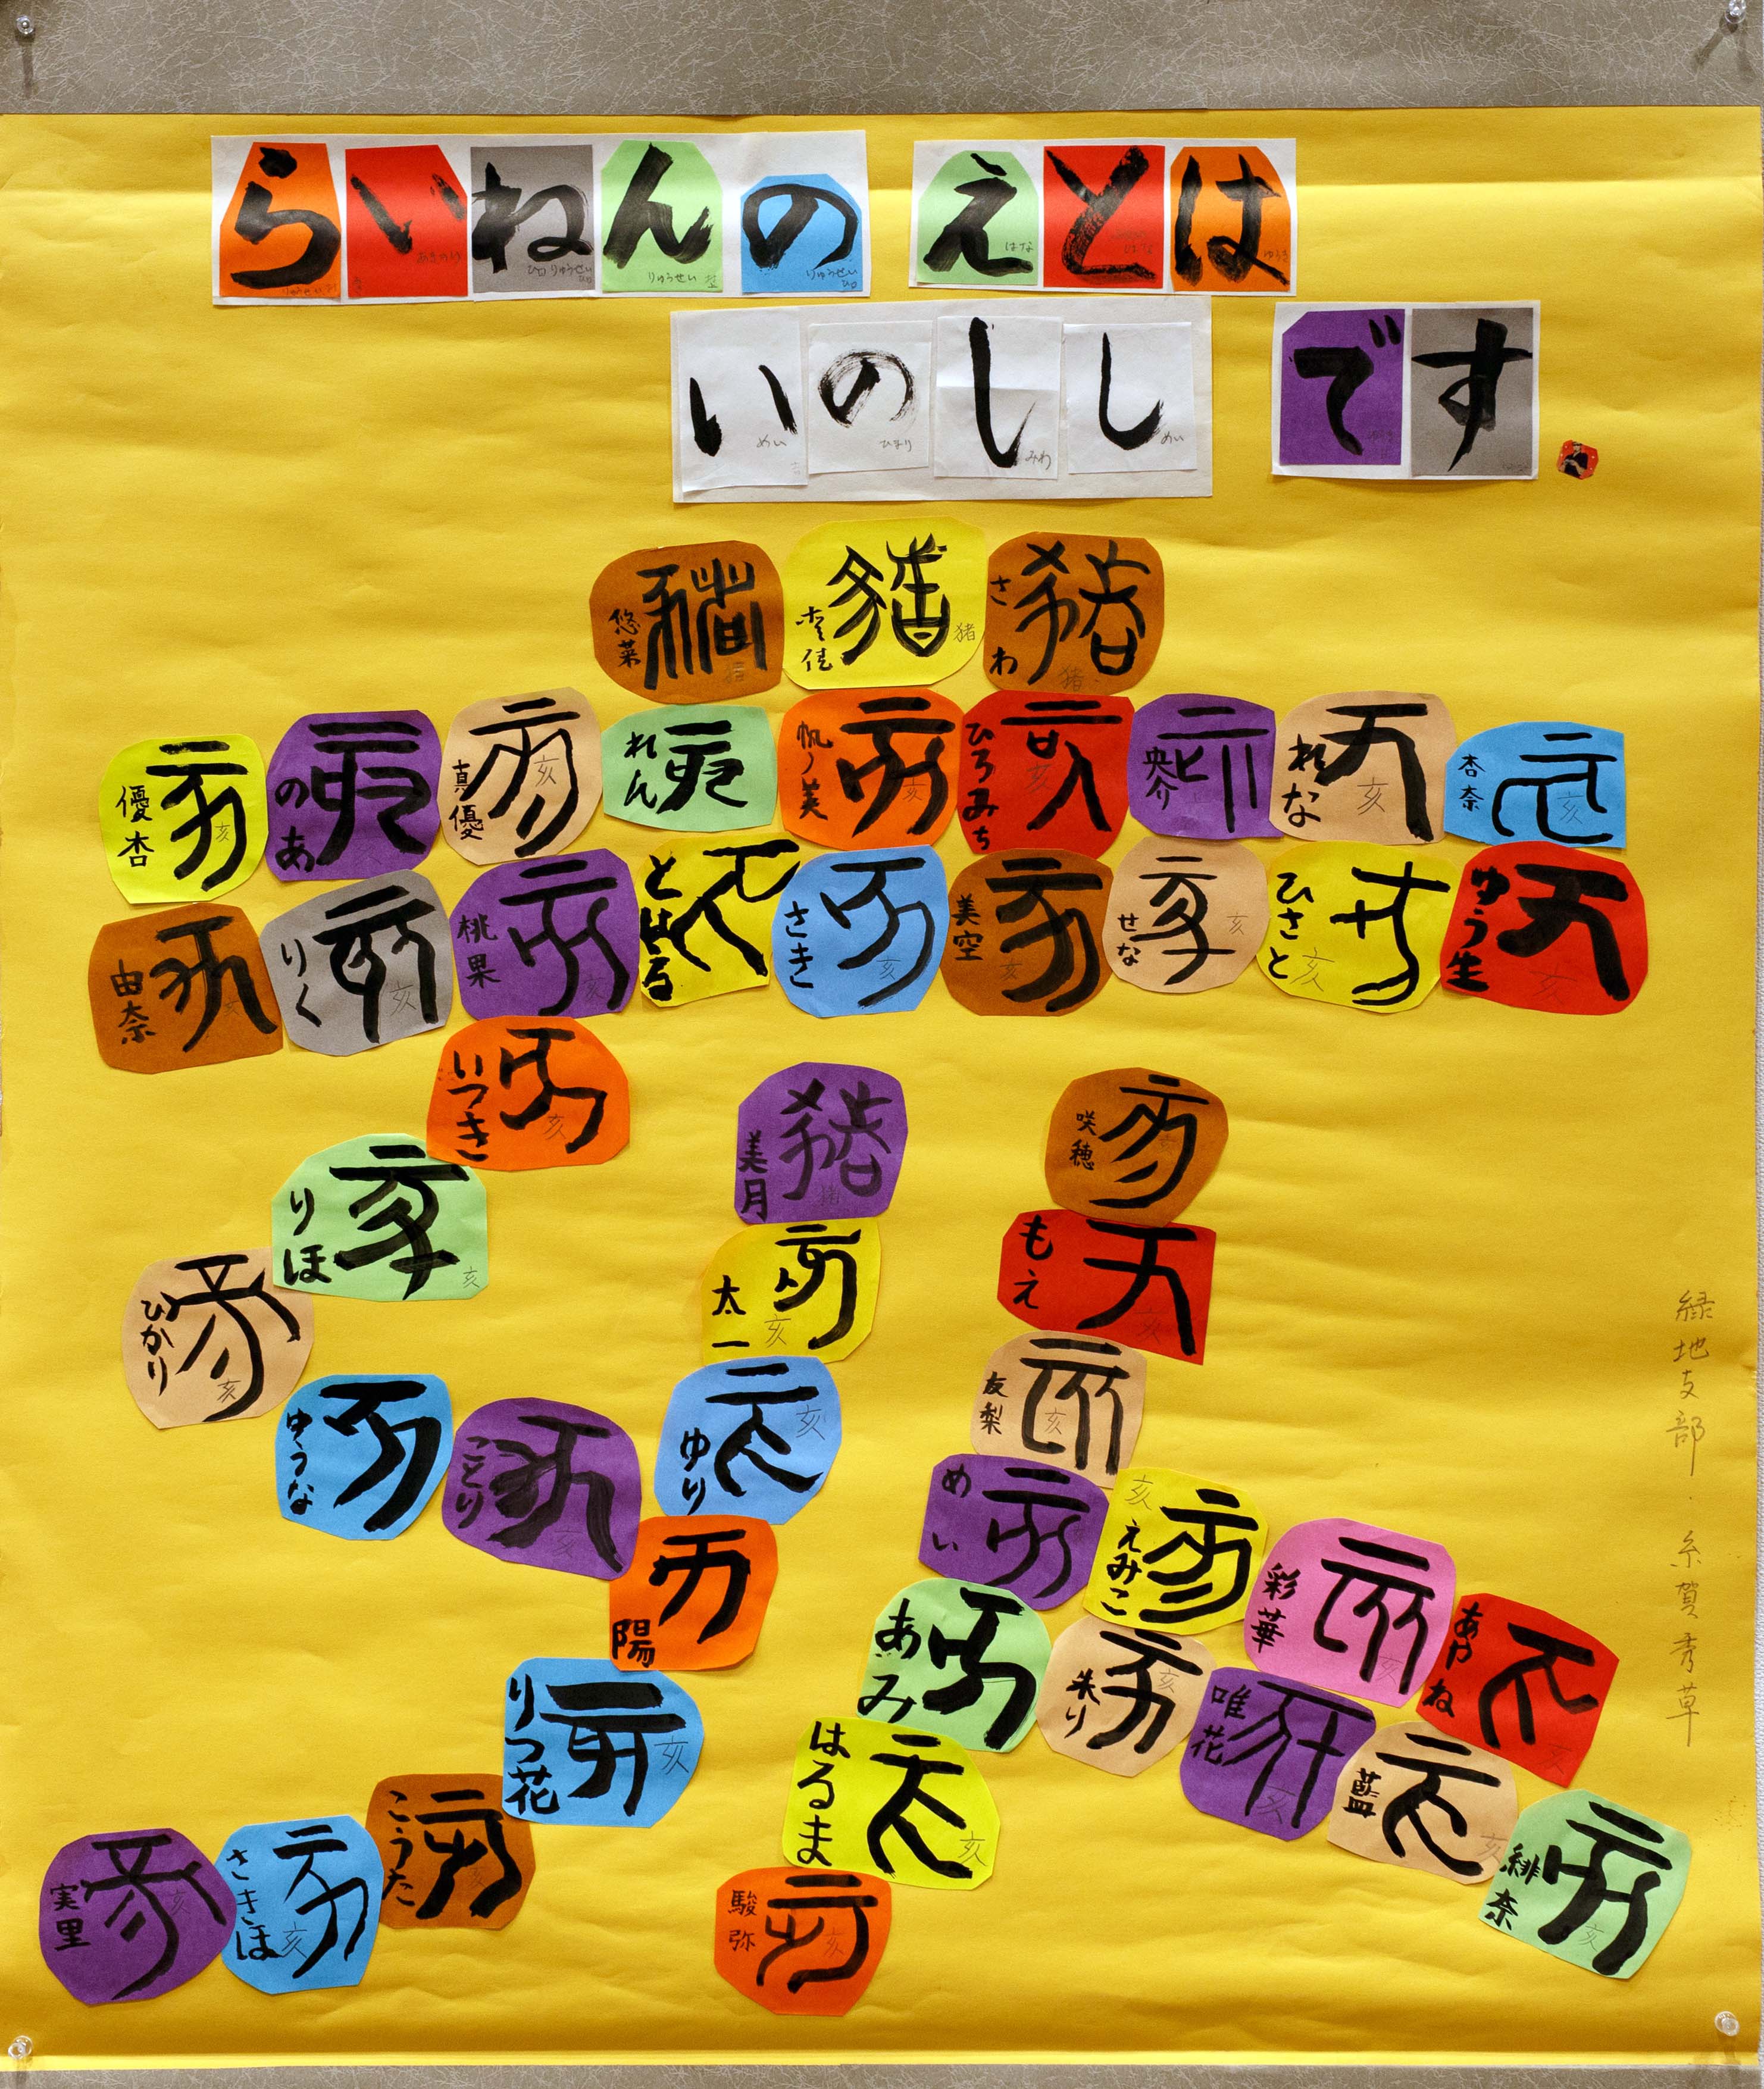 らいねんの えとは
いのしし です
悠菜 猪
李佳 猪
さわ 猪
優杏 亥
のあ 亥
真優 亥
れん 亥
帆乃美 亥
ひろみち 亥
央介 亥
れな 亥
杏奈 亥
由奈 亥
りく 亥
桃果 亥
とはる 亥
さき 亥
美空 亥
せな 亥
ひさと 亥
ゆう生 亥
いつき 亥
りほ 亥
ひかり 亥
美月 猪
咲穂 亥
太一 亥
もえ 亥
ゆうな 亥
ことり 亥
ゆり 亥
友梨 亥
陽 亥
めい 亥
えみこ 亥
彩華 亥
あかね 亥
りつ花 亥
あみ 亥
朱り 亥
唯花 亥
藍 亥
緋奈 亥
はるま 亥
こうた 亥
さきほ 亥
実里 亥
駿弥 亥
緑地支部・糸賀秀草